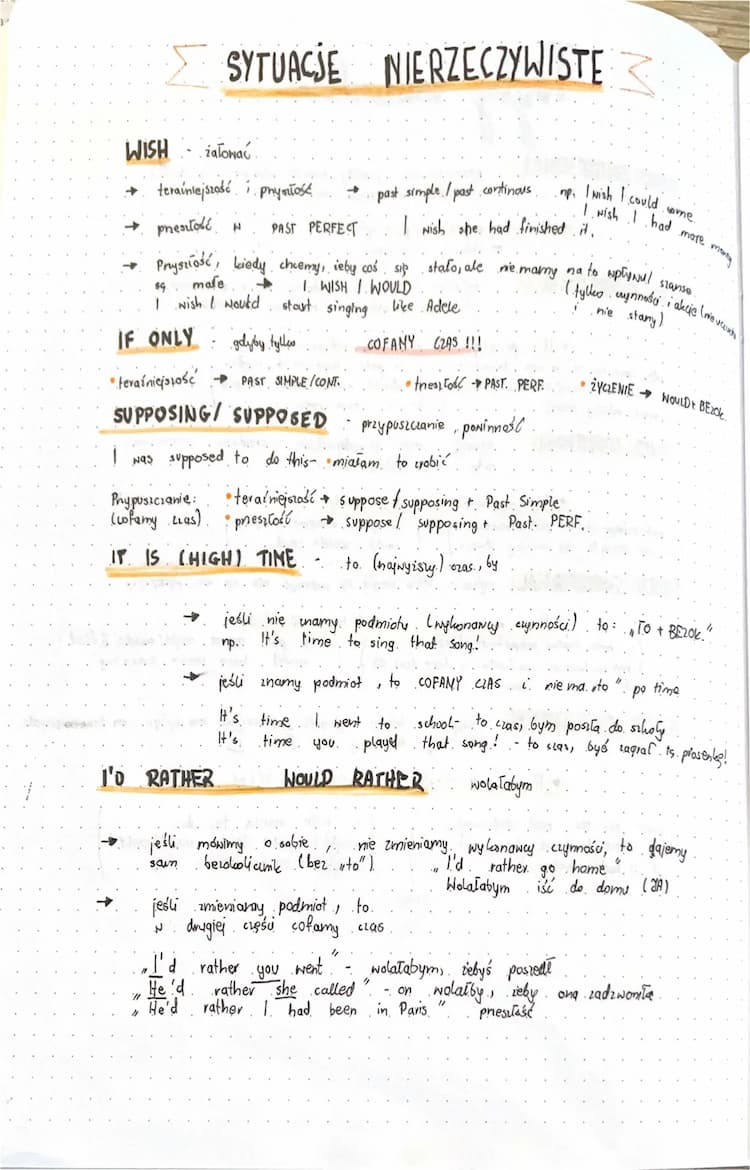 SYTUACJE NIERZECZYWISTE
WISH - żałować
→ teraźniejszość i przyszłość → past simple/past continous np. I wish I could come
I wish I had more money
→ przeszłość W PAST PERFECT I wish she had finished it.
→ Przyszłość, kiedy chcemy, żeby coś się stało, ale nie mamy na to wpływu/szanse
są małe → I WISH I WOULD (tylko czynności i akcje
I wish I would start singing like Adele i nie stany)
IF ONLY - gdyby tylko COFANY CZAS !!!
• teraźniejszość → PAST SIMPLE/CONT. • przeszłość → PAST. PERF. • ŻYCZENIE → WOULD + BEZOK.
SUPPOSING/ SUPPOSED - przypuszczanie, powinność
I was supposed to do this - miałam to zrobić
Przypuszczanie: • teraźniejszość → suppose/supposing + Past Simple
(cofamy czas) • przeszłość → suppose/ supposing + Past. PERF.
IT IS (HIGH) TIME - to (najwyższy) czas by
→ jeśli nie znamy podmiotu (wykonawcy czynności) to: „TO + BEZOK."
np. It's time to sing that song!
→ jeśli znamy podmiot, to COFANY CZAS i nie ma „to" po time
It's time I went to school - to czas, bym poszła do szkoły
It's time you played that song! - to czas, byś zagrał tą piosenkę!
I'D RATHER WOULD RATHER wolałabym
→ jeśli mówimy o sobie, nie zmieniamy wykonawcy czynności, to dajemy
sam bezokolicznik (bez „to") „I'd rather go home"
Wolałabym iść do domu (JA)
→ jeśli zmieniamy podmiot, to
w drugiej części cofamy czas
„I'd rather you went" - wolałabym, żebyś poszedł
„He'd rather she called" - on wolałby, żeby ona zadzwoniła
„He'd rather I had been in Paris" przeszłość